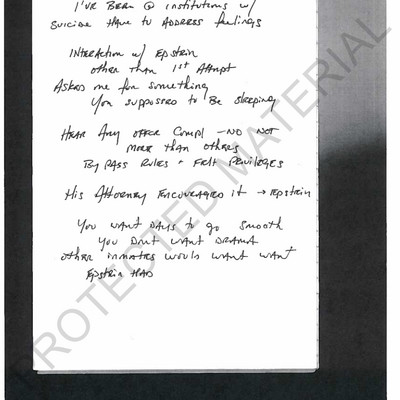 I'VE BEEN @ institutions w/
SUICIDE HAVE to ADDRESS feelings
INTERACTION w/ EPSTEIN
other than 1st Attmpt
ASKED me for something
You supposed to BE SLEEPING
HEAR ANY OFFER COMPL - NO NOT
MORE than others
BYPASS RULES + FELT PRIVILEGES
HIS ATTORNEY ENCOURAGED it → EPSTEIN
YOU WANT DAYS to go SMOOTH
YOU DON'T WANT DRAMA
other inmates would want want
EPSTEIN HAD
PROTECTED MATERIAL